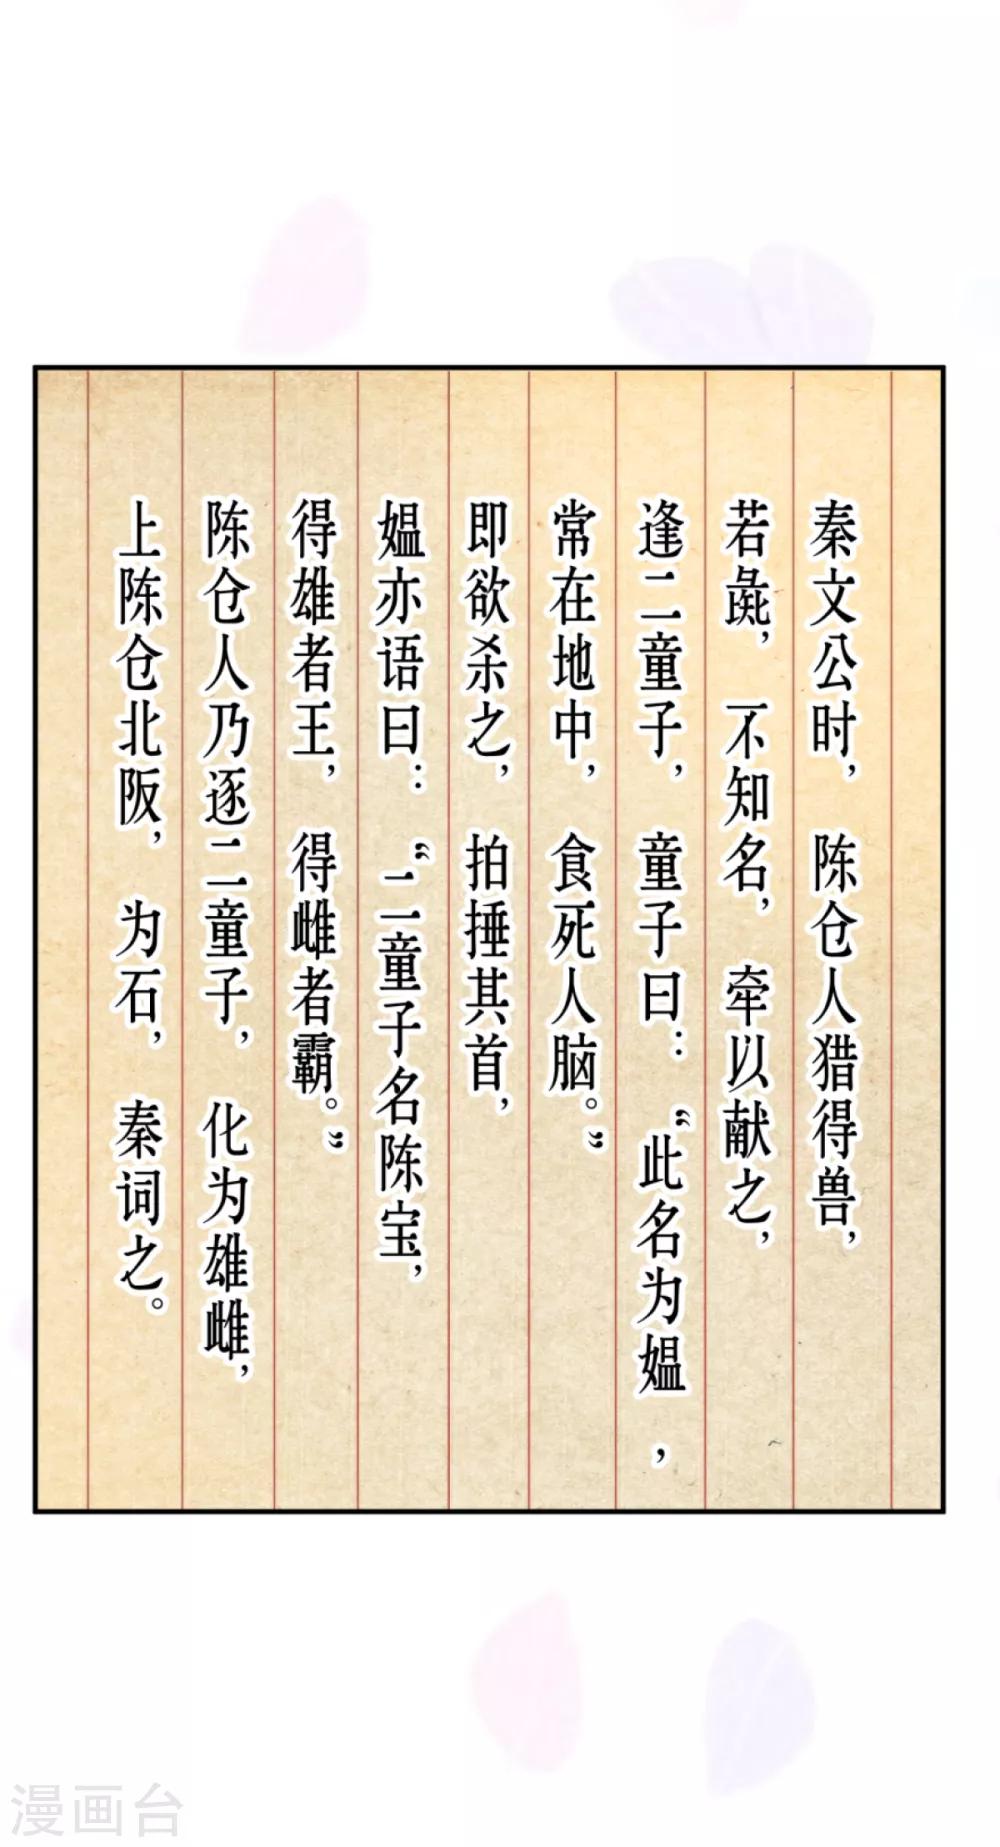 秦文公时，陈仓人猎得兽，
若彘，不知名，牵以献之，
逢二童子，童子曰：“此名为媪，
常在地中，食死人脑。”
即欲杀之，拍捶其首，
媪亦语曰：“二童子名陈宝，
得雄者王，得雌者霸。”
陈仓人乃逐二童子，化为雄雌，
上陈仓北阪，为石，秦词之。
漫画台